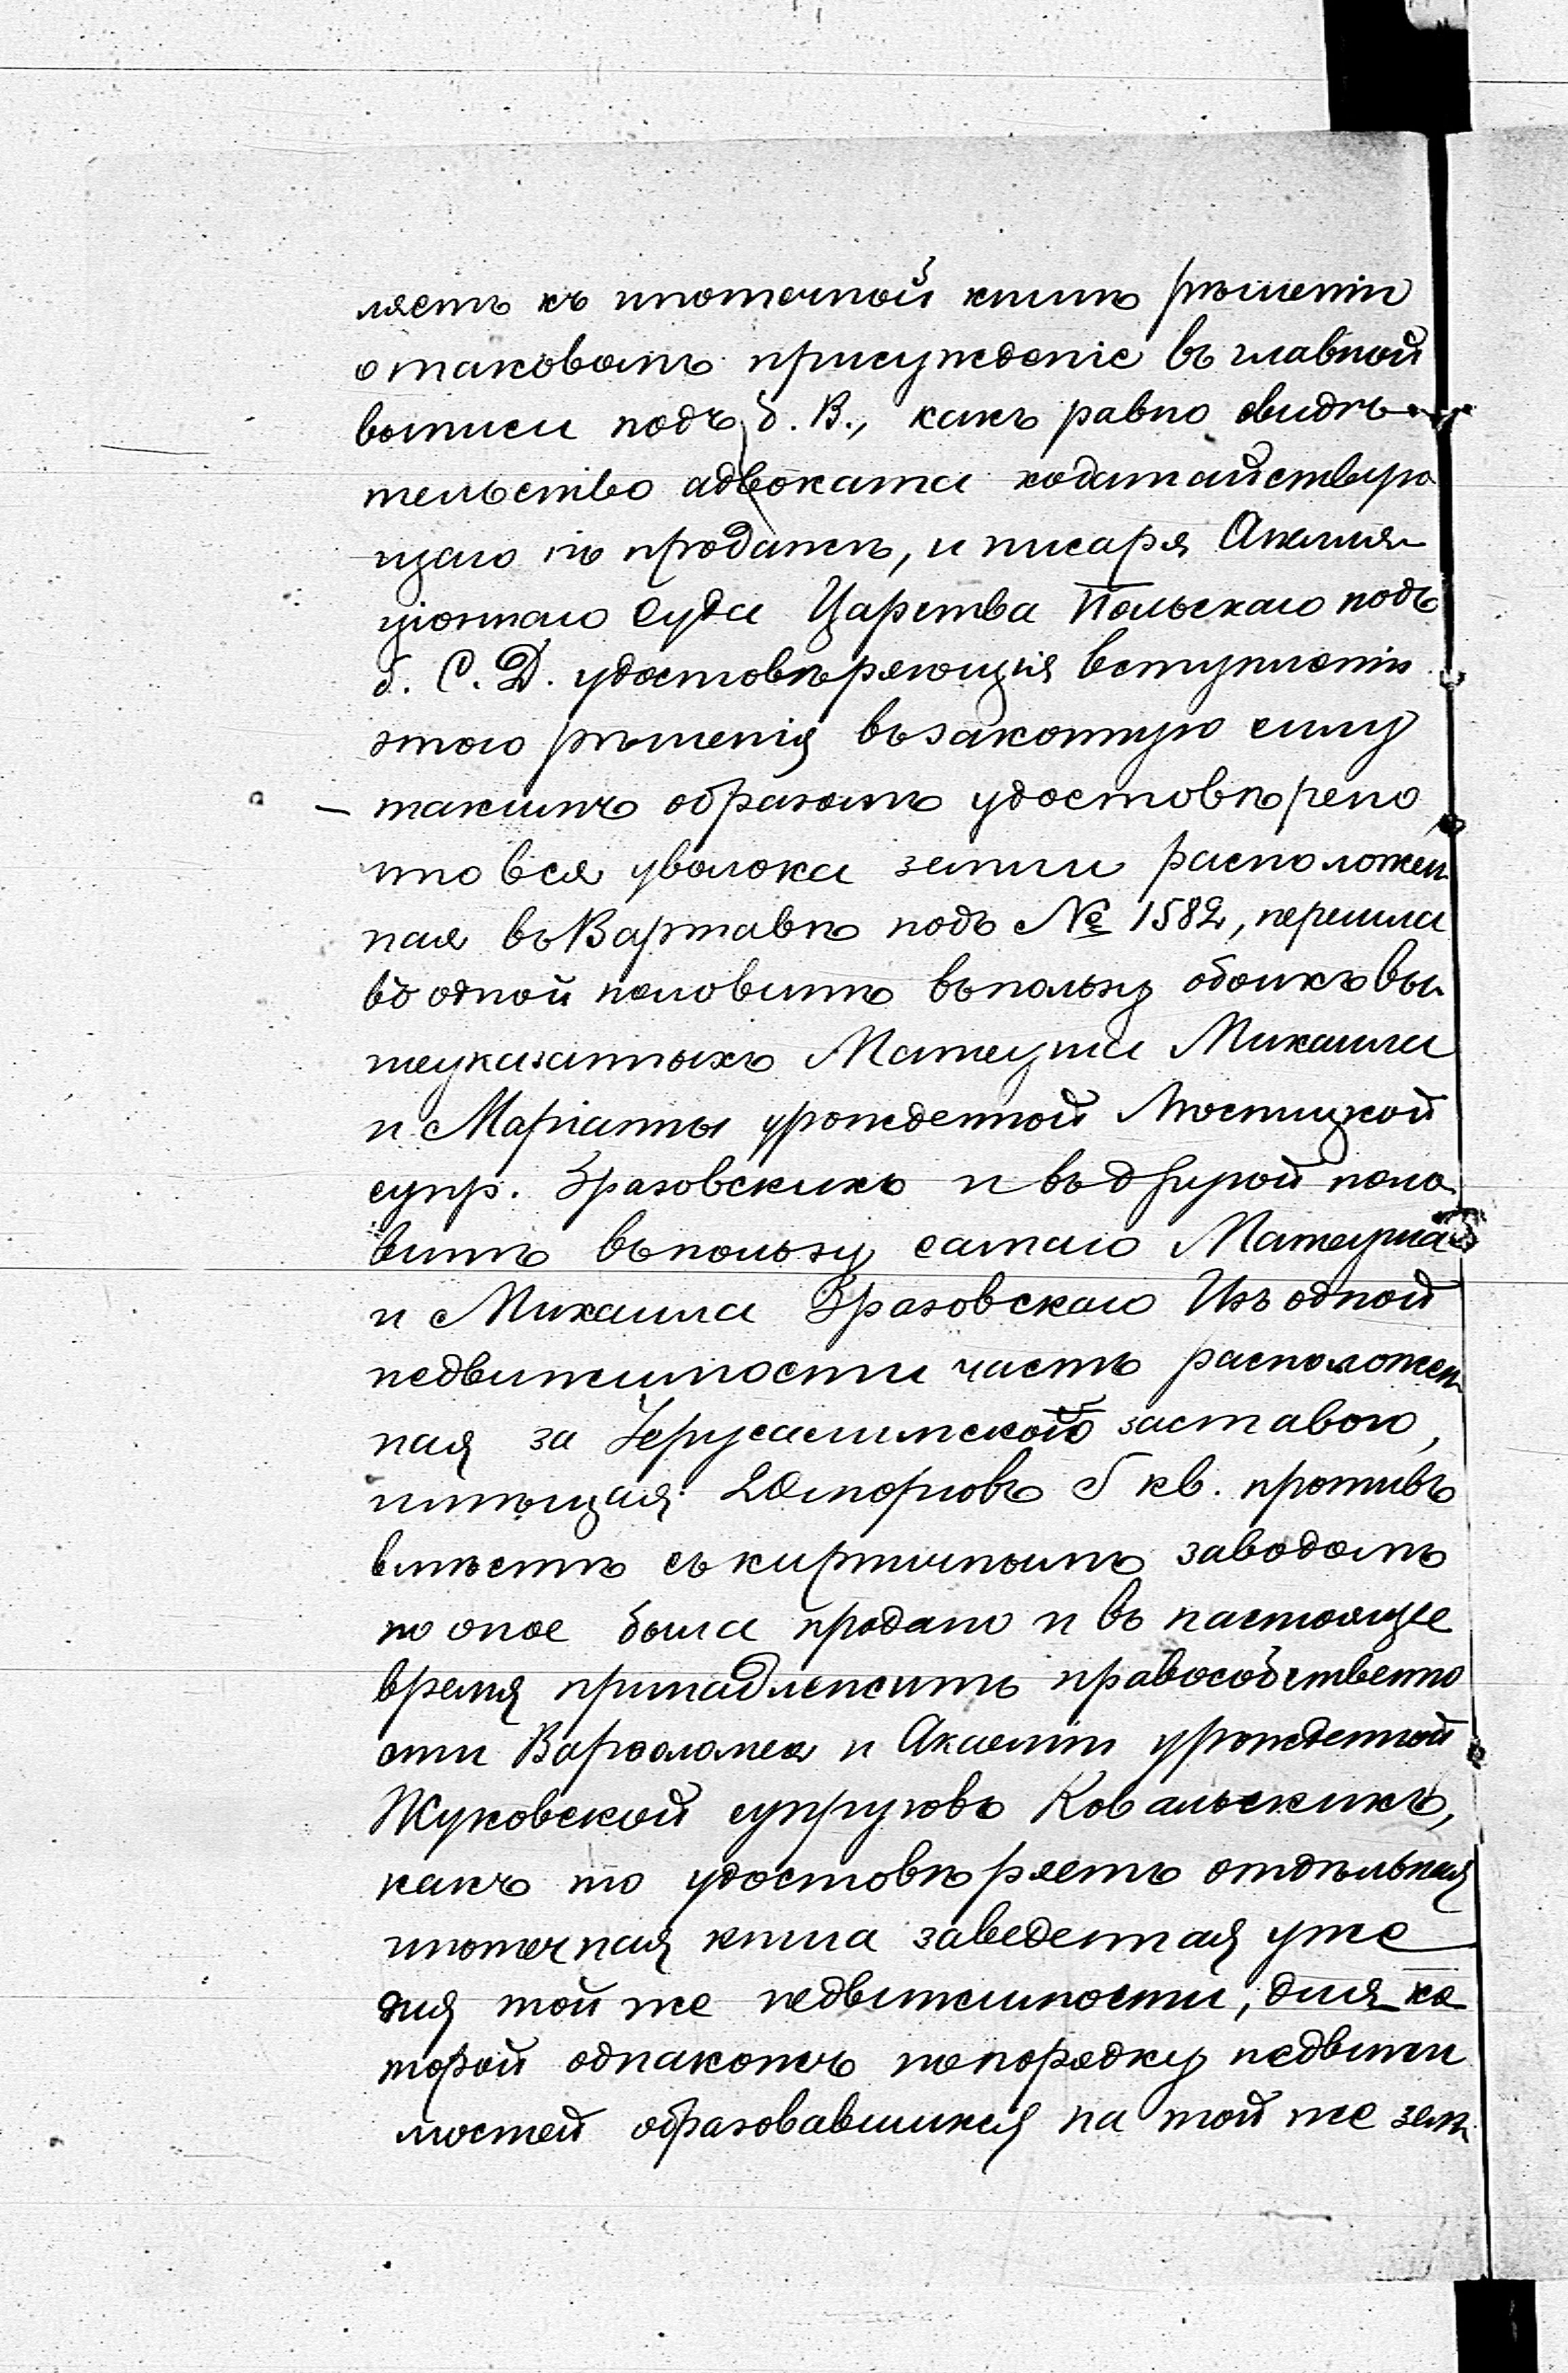 ляетъ къ ипотечной книгѣ рѣшеніи
о таковомъ присужденіе въ главной
выписи подъ б. В., какъ равно свидѣ-
тельство адвоката ходатайствую
щаго въ продажѣ, и писаря Апелля-
ціоннаго Суда Царства Польскаго подъ
б. С. Д. удостовѣряющія вступленіи
этого рѣшенія въ законную силу
— такимъ образомъ удостовѣрено
что вся уволока земли расположен
ная въ Варшавѣ подъ № 1582, перешла
въ одной половинѣ въ пользу обоихъ вы-
шеуказанныхъ Матеуша Михаила
и Маріанны урожденной Мостицкой
супр. Бразовскихъ и въ другой поло
винѣ въ пользу самаго Матеуша
и Михаила Бразовскаго Изъ одной
недвижимости часть расположен
ная за Іерусалимской заставою,
имѣющая морговъ 5 кв. прентовъ
вмѣстѣ съ кирпичнымъ заводомъ
на оное была продано и въ настоящее
время принадлежитъ правособственно
сти Варфоломея и Акселіи урожденной
Жуковской супруговъ Ковальскихъ,
какъ то удостовѣряетъ отдѣльная
ипотечная книга заведенная уже
для той же недвижимости, для ко
торой однакожъ по порядку недвижи
мостей образовавшихся на той же зем